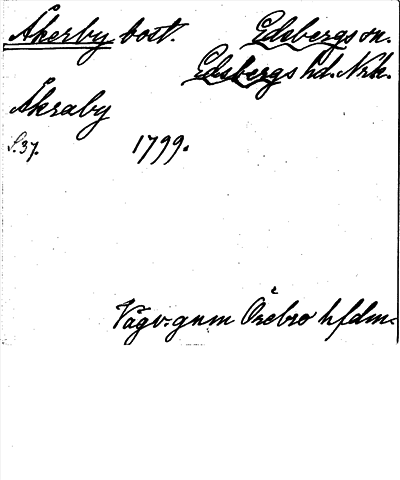 Åkerby bost. Edsbergs sn.
Edsbergs hd. Nrk.
Åkraby
S.37. 1799.
Vägv. gnm Örebro hfdm.